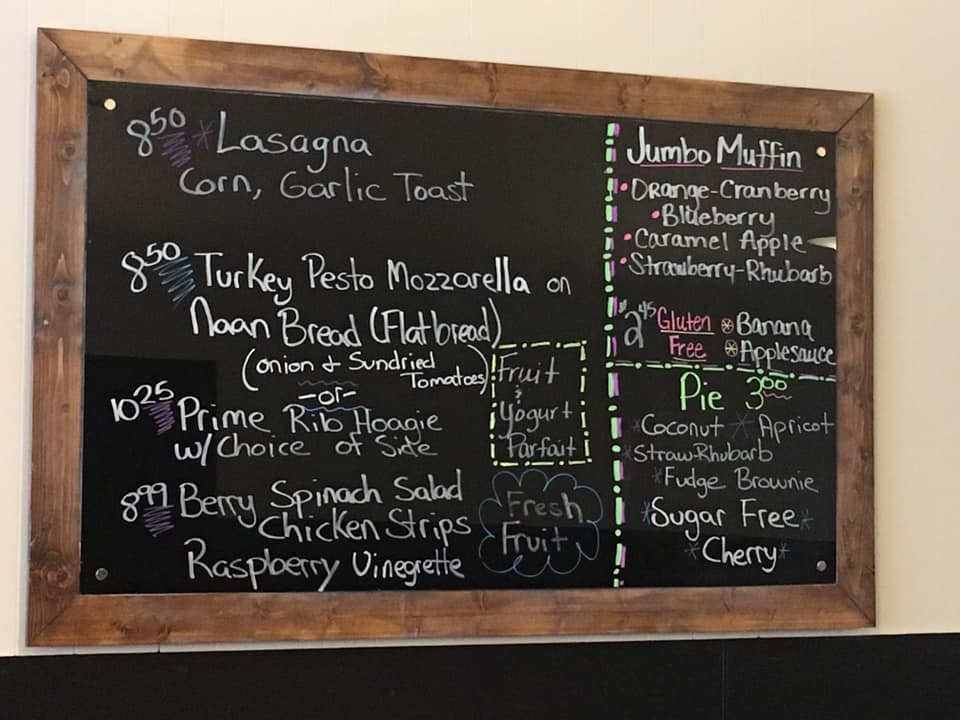 8 50 *Lasagna
Corn, Garlic Toast
8 50 Turkey Pesto Mozzarella on
Naan Bread (Flatbread)
(Onion & Sundried
Tomatoes)
-or-
10 25 Prime Rib Hoagie
w/ Choice of Side
8 99 Berry Spinach Salad
Chicken Strips
Raspberry Vinegrette
Fruit
&
Yogurt
Parfait
Fresh
Fruit
Jumbo Muffin
• Orange-Cranberry
• Blueberry
• Caramel Apple
• Strawberry-Rhubarb
$2 45 Gluten Free
* Banana
* Applesauce
Pie 3 00
*Coconut * Apricot
*Straw-Rhubarb
*Fudge Brownie
*Sugar Free*
*Cherry*